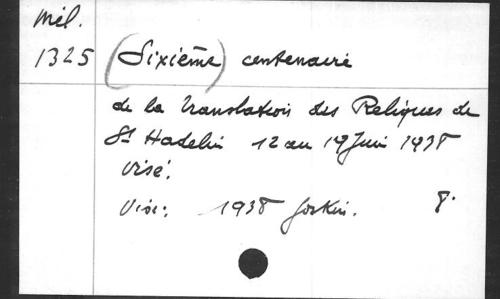 Mél.
1325 (Sixième) centenaire
de la Translation des Reliques de
St Hadelin 12 au 19 Juin 1938
Visé.
Visé: 1938 Jorkin. 8.